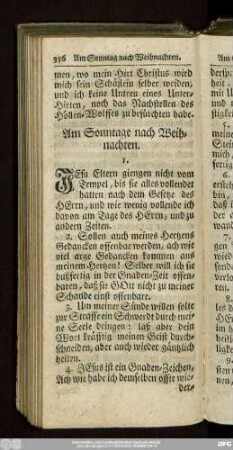 356 Am Sonntag nach Weihnachten.
men, wo mein Hirt Christus wird
mich sein Schäflein selber weiden,
und ich keine Untren eines Unter-
Hirten, noch das Nachstellen des
Höllen-Wolffes zu befürchten habe.
Am Sonntage nach Weih-
nachten.
1.
JEsu Eltern giengen nicht vom
Tempel, bis sie alles vollendet
hatten nach dem Gesetze des
HErrn, und wie wenig vollende ich
davon am Tage des HErrn, und zu
andern Zeiten.
2. Sollen auch meines Hertzens
Gedancken offenbar werden, ach wie
viel arge Gedancken kommen aus
meinem Hertzen! Selber will ich sie
bußfertig in der Gnaden-Zeit offen-
baren, daß sie GOtt nicht zu meiner
Schande einst offenbare.
3. Um meiner Sünde willen solte
zur Straffe ein Schwerdt durch mei-
ne Seele dringen: laß aber dein
Wort kräfftig meinen Geist durch-
schneiden, aber auch wieder gäntzlich
heilen.
4. JEsus ist ein Gnaden-Zeichen,
Ach wie habe ich demselben offte wie-
der-